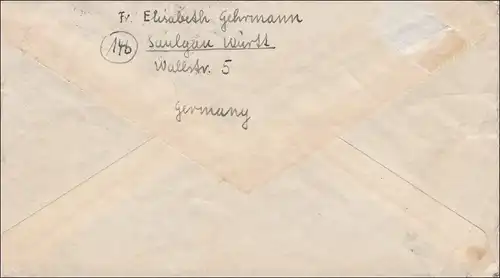 Fr. Elisabeth Gehrmann
(14b) Saulgau Württ
Wallstr. 5
Germany